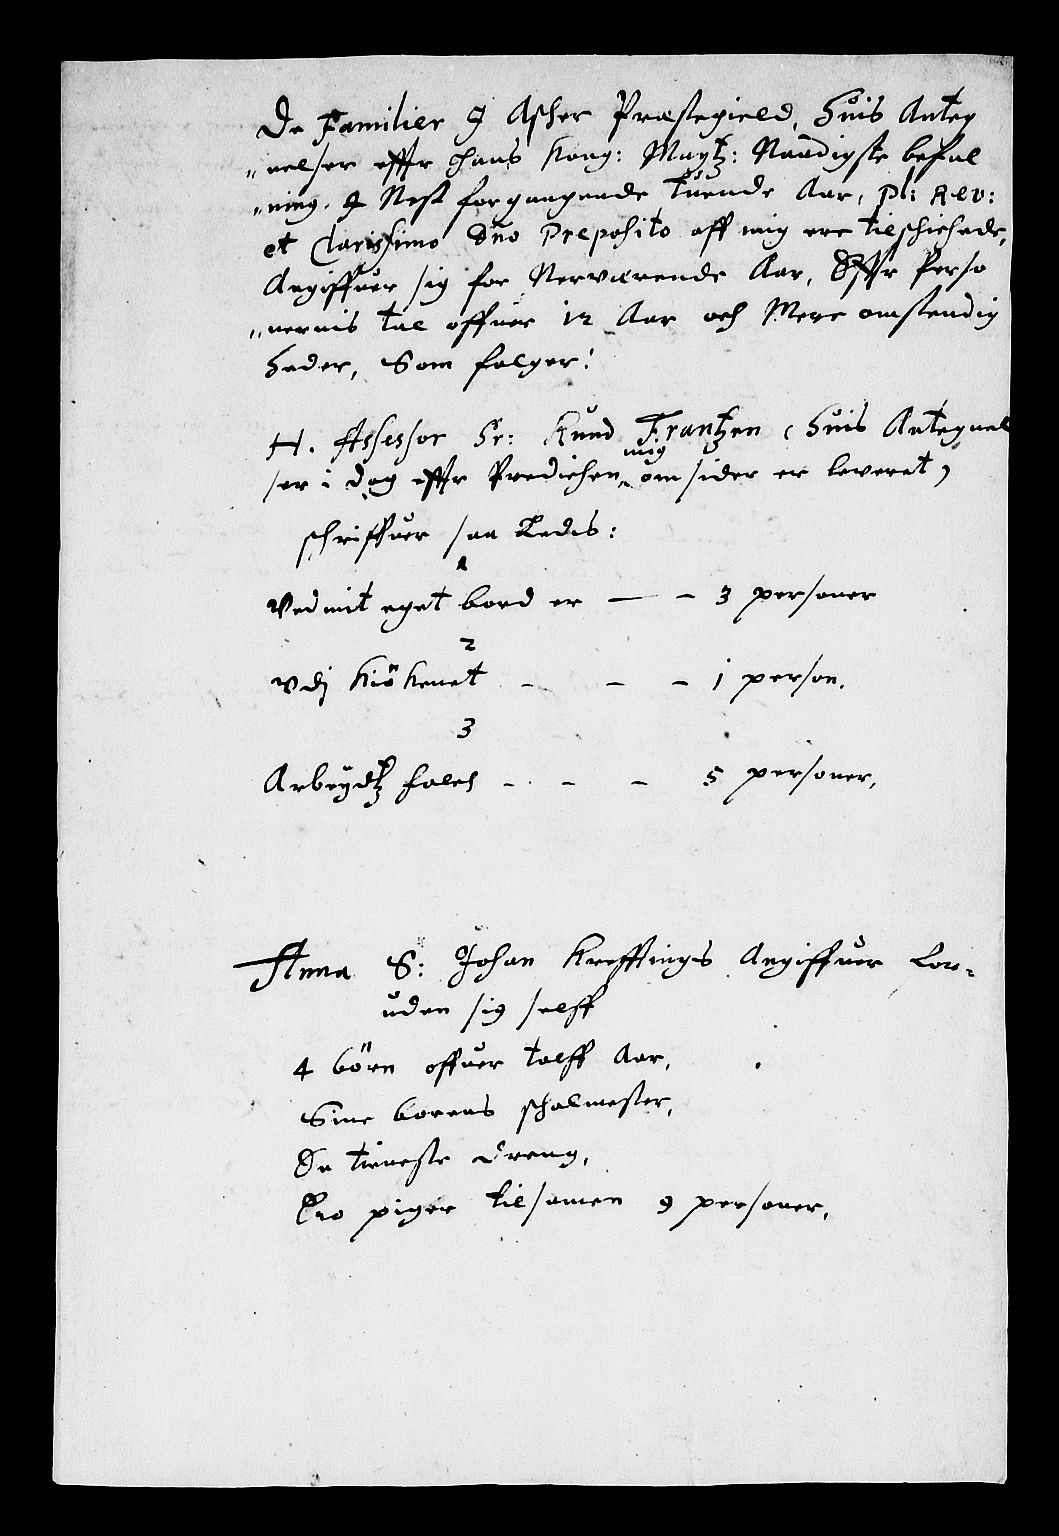 De Familier J Ascher Præstegield, Huis Anteg
"nelser effter Hans Kong: Maytz: Naadigste befal
"ning. J Nest forgangende tuende Aar, pl: Rev:
et Clarissimo Dño Preposito aff mig ere tilschichede,
Angiffuer sig for Nerværende Aar, Effter Perso
"nernis tal offuer 12 Aar och Mere omstendig
heder, Som følger:
H. Assessor Hr: Knud Frantzen (huis Antegnel
ser i dag effter Predichen mig omsider er leveret)
schriffuer saa ledis:
1
Ved mit eget bord er — - 3 personer
2
Vdj Kiökenet - - - 1 person.
3
Arbeydtz folch - - - 5 personer,
Anna S: Johan Krefftings Angiffuer
uden sig selff
4 börn offuer tolff Aar,
Sine børens scholmester,
En tieneste dreng,
Tvo piger tilsamen 9 personer,